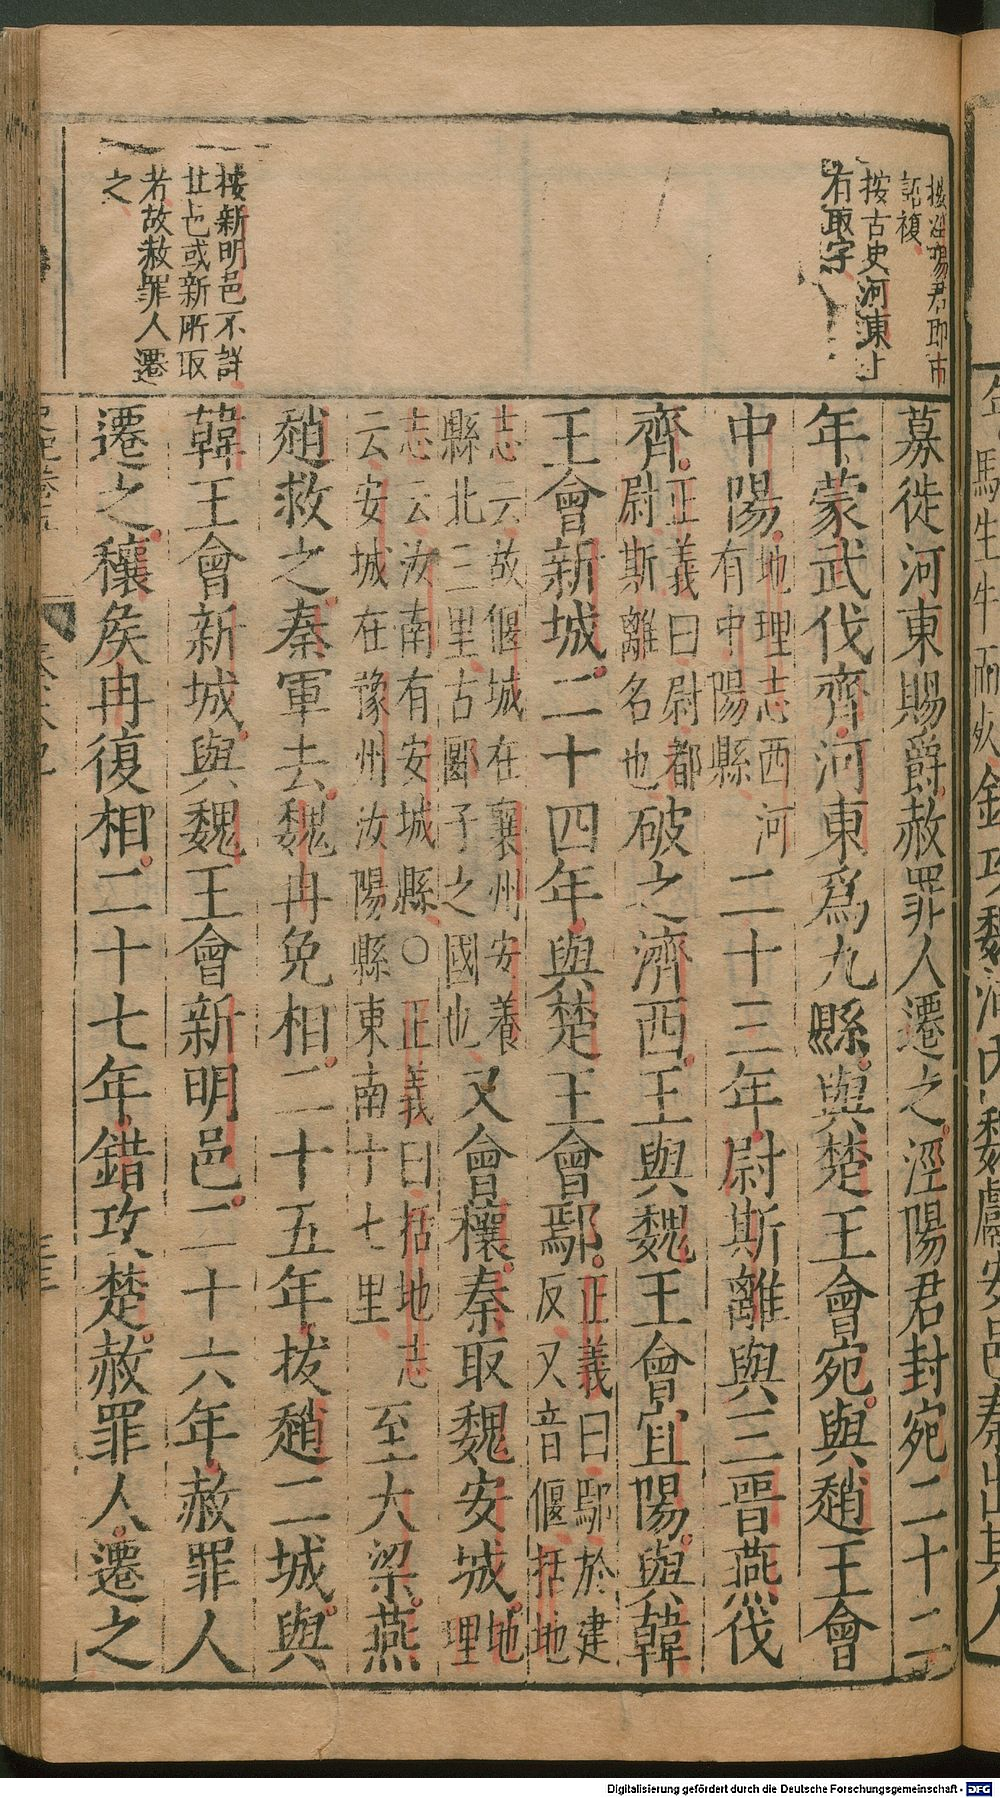 按涇陽君即巿
訖複
按古史河東上
有取字
募徙河東賜爵赦罪人遷之涇陽君封宛二十二
年蒙武伐齊河東爲九縣與楚王會宛與趙王會
中陽地理志西河
有中陽縣二十三年尉斯離與三晉燕伐
齊正義曰尉都
尉斯離名也破之濟西王與魏王會宜陽與韓
王會新城二十四年與楚王會鄢正義曰鄢於建
反又音偃括地
志云故偃城在襄州安養
縣北三里古郾子之國也又會穰秦取魏安城地
理
志云汝南有安城縣○正義曰括地志
云安城在豫州汝陽縣東南十七里至大梁燕
趙救之秦軍去魏冉免相二十五年拔趙二城與
韓王會新城與魏王會新明邑二十六年赦罪人
遷之穰矦冉復相二十七年錯攻楚赦罪人遷之
按新明邑不詳
其邑或新所取
者故赦罪人遷
之
Digitalisierung gefördert durch die Deutsche Forschungsgemeinschaft - DFG